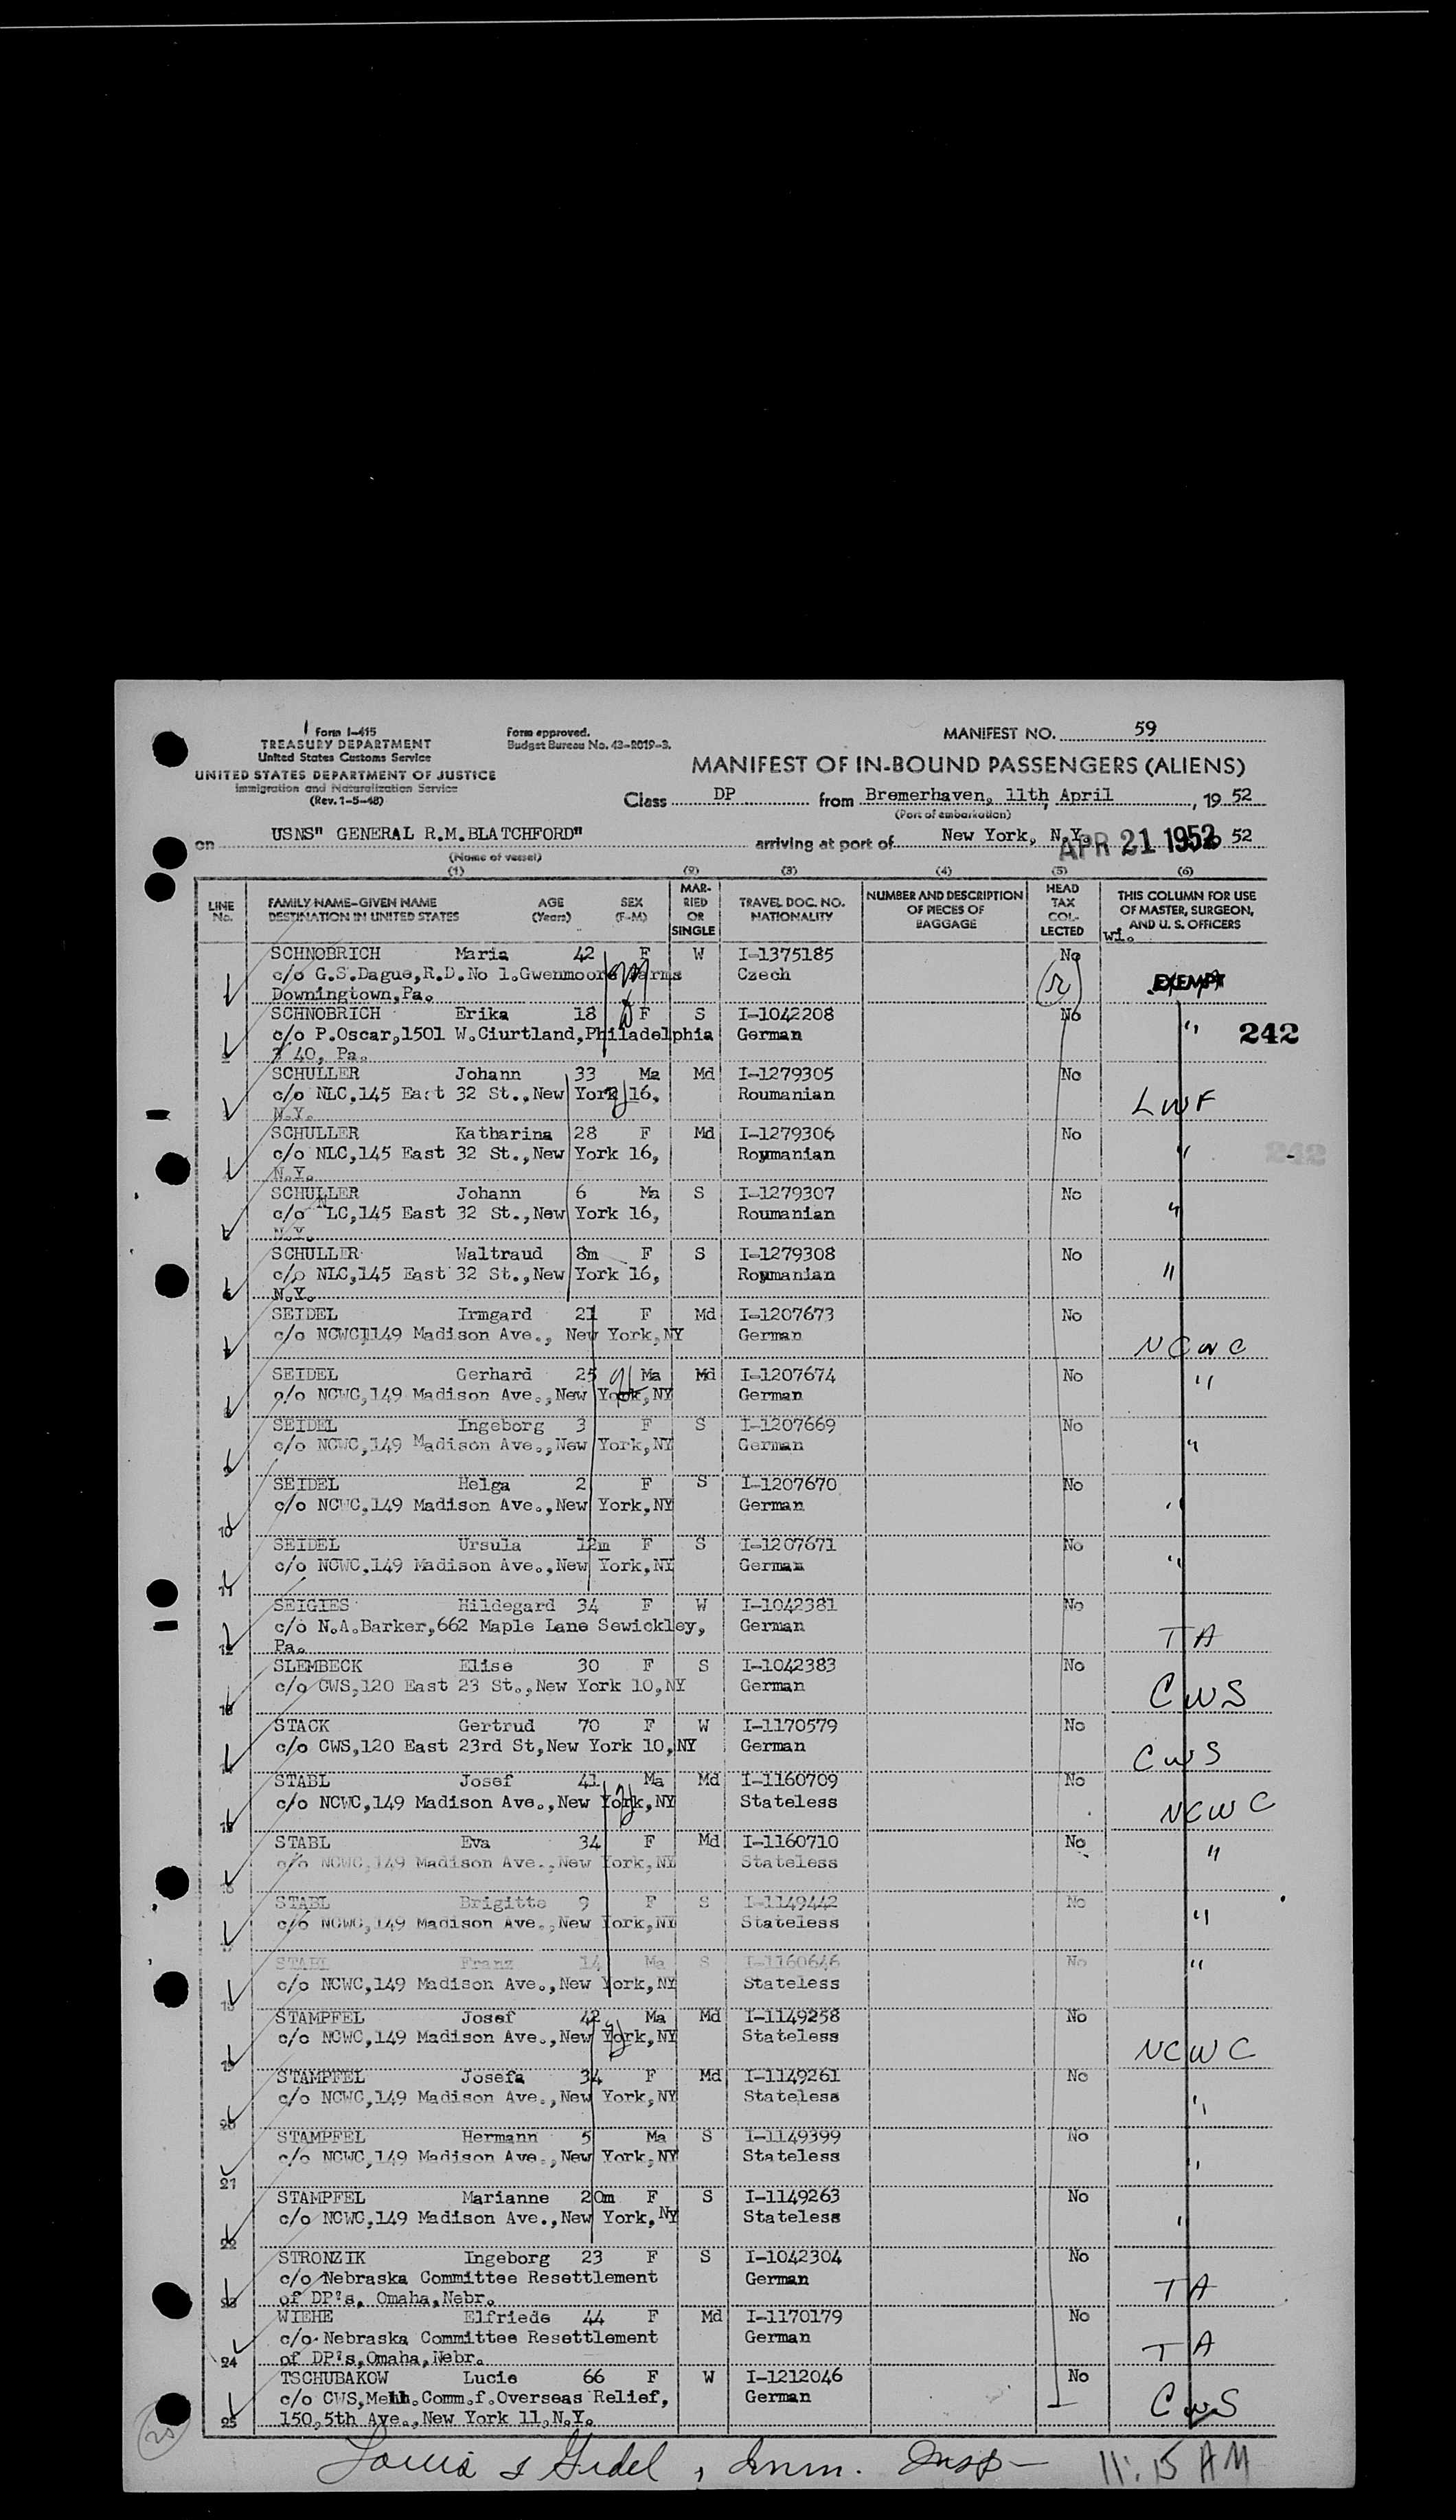 Form I-415
TREASURY DEPARTMENT
United States Customs Service
UNITED STATES DEPARTMENT OF JUSTICE
Immigration and Naturalization Service
(Rev. 1-5-48)
Form approved.
Budget Bureau No. 43-R019-3.
MANIFEST NO. 59
MANIFEST OF IN-BOUND PASSENGERS (ALIENS)
Class DP from Bremerhaven, 11th April, 19 52
(Port of embarkation)
on USNS" GENERAL R.M.BLATCHFORD" arriving at port of New York, N.Y. APR 21 1952 52
(Name of vessel)
(1) (2) (3) (4) (5) (6)
LINE No. FAMILY NAME-GIVEN NAME DESTINATION IN UNITED STATES AGE (Years) SEX (F-M) MARRIED OR SINGLE TRAVEL DOC. NO. NATIONALITY NUMBER AND DESCRIPTION OF PIECES OF BAGGAGE HEAD TAX COLLECTED THIS COLUMN FOR USE OF MASTER, SURGEON, AND U. S. OFFICERS
wi.
SCHNOBRICH Maria 42 F W I-1375185 No
c/o G.S.Dague,R.D.No 1.Gwenmoore Farms Czech EXEMPT
Downingtown,Pa.
SCHNOBRICH Erika 18 F S I-1042208 No "
c/o P.Oscar,1501 W.Ciurtland,Philadelphia German 242
40, Pa.
SCHULLER Johann 33 Ma Md I-1279305 No
c/o NLC,145 East 32 St.,New York 16, Roumanian LWF
N.Y.
SCHULLER Katharina 28 F Md I-1279306 No
c/o NLC,145 East 32 St.,New York 16, Roymanian " 242
N.Y.
SCHULLER Johann 6 Ma S I-1279307 No
c/o NLC,145 East 32 St.,New York 16, Roumanian "
N.Y.
SCHULLER Waltraud 8m F S I-1279308 No
c/o NLC,145 East 32 St.,New York 16, Roymanian "
N.Y.
SEIDEL Irmgard 21 F Md I-1207673 No
c/o NCWC,149 Madison Ave., New York,NY German NCWC
SEIDEL Gerhard 25 Ma Md I-1207674 No
c/o NCWC,149 Madison Ave.,New York,NY German "
SEIDEL Ingeborg 3 F S I-1207669 No
c/o NCWC,149 Madison Ave.,New York,NY German "
SEIDEL Helga 2 F S I-1207670 No
10 c/o NCWC,149 Madison Ave.,New York,NY German "
SEIDEL Ursula 12m F S I-1207671 No
11 c/o NCWC,149 Madison Ave.,New York,NY German "
SEIGIES Hildegard 34 F W I-1042381 No
12 c/o N.A.Barker,662 Maple Lane Sewickley, German TA
Pa.
SLEMBECK Elise 30 F S I-1042383 No
c/o CWS,120 East 23 St.,New York 10,NY German CWS
STACK Gertrud 70 F W I-1170579 No
c/o CWS,120 East 23rd St,New York 10,NY German CWS
STABL Josef 41 Ma Md I-1160709 No
c/o NCWC,149 Madison Ave.,New York,NY Stateless NCWC
STABL Eva 34 F Md I-1160710 No
c/o NCWC,149 Madison Ave.,New York,NY Stateless "
STABL Brigitte 9 F S I-1149442 No
c/o NCWC,149 Madison Ave.,New York,NY Stateless "
STABL Franz 14 Ma S I-1160646 No
c/o NCWC,149 Madison Ave.,New York,NY Stateless "
STAMPFEL Josef 42 Ma Md I-1149258 No
c/o NCWC,149 Madison Ave.,New York,NY Stateless NCWC
STAMPFEL Josefa 34 F Md I-1149261 No
20 c/o NCWC,149 Madison Ave.,New York,NY Stateless "
STAMPFEL Hermann 5 Ma S I-1149399 No
21 c/o NCWC,149 Madison Ave.,New York,NY Stateless "
STAMPFEL Marianne 20m F S I-1149263 No
22 c/o NCWC,149 Madison Ave.,New York,NY Stateless "
STRONZIK Ingeborg 23 F S I-1042304 No
c/o Nebraska Committee Resettlement German TA
23 of DP's, Omaha,Nebr.
WIEHE Elfriede 44 F Md I-1170179 No
c/o Nebraska Committee Resettlement German TA
24 of DP's,Omaha,Nebr.
TSCHUBAKOW Lucie 66 F W I-1212046 No
c/o CWS,Menn.Comm.f.Overseas Relief, German CWS
25 150,5th Ave.,New York 11,N.Y.
Imm. Insp 11:15 AM